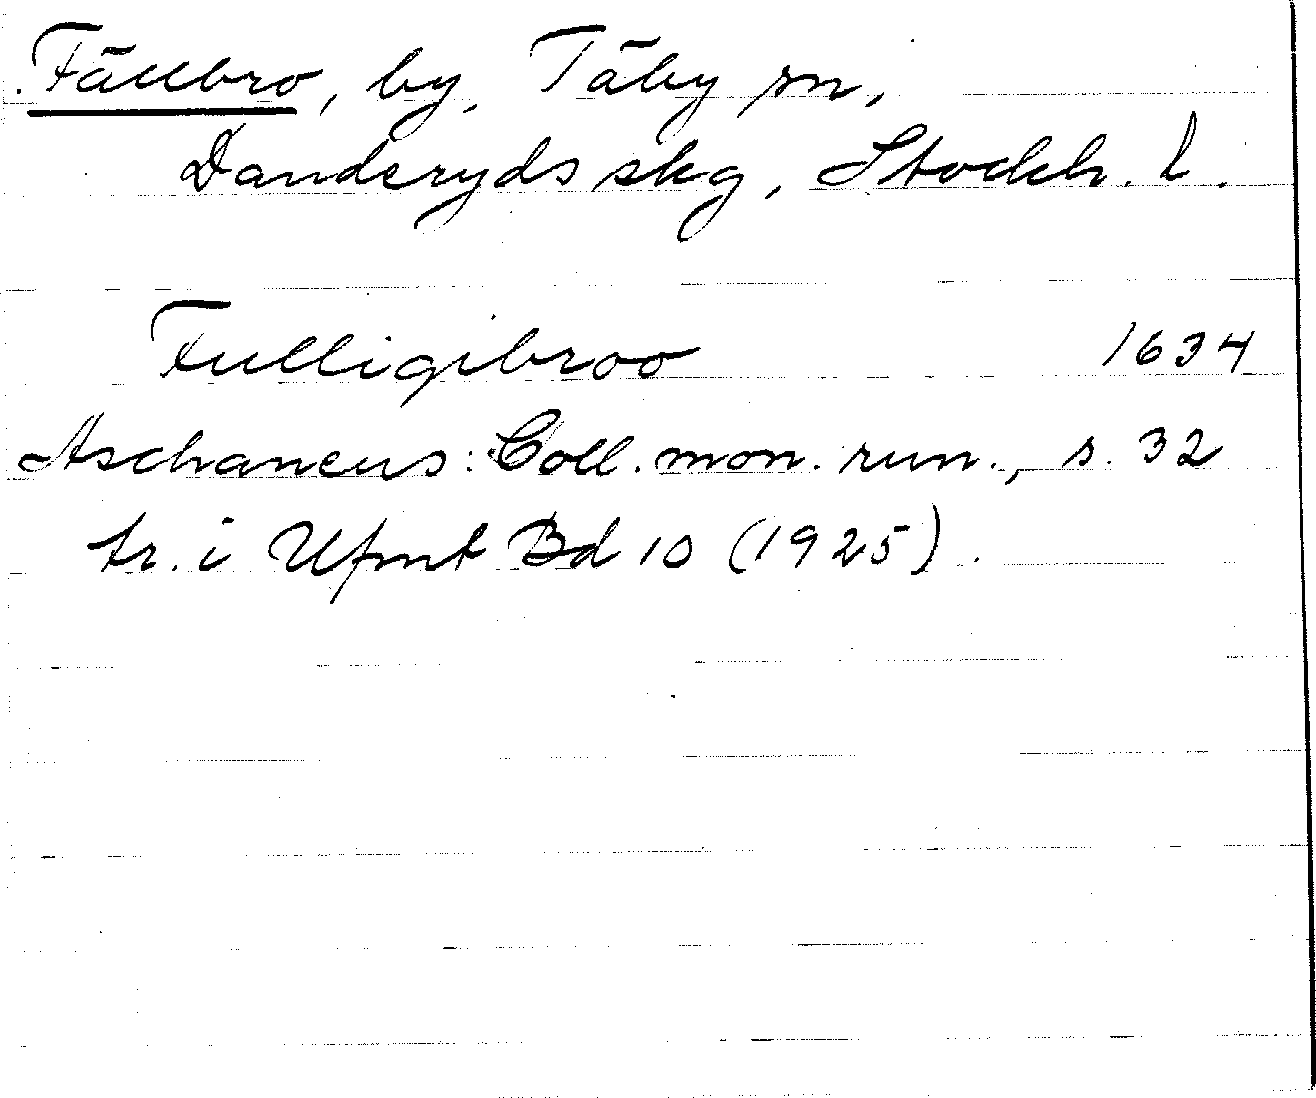 Fällbro, by, Täby sn,
Danderyds skg, Stockh. l.
Fulligibroo 1634
Aschaneus: Coll. mon. run., s. 32
tr. i Ufmt Bd 10 (1925).